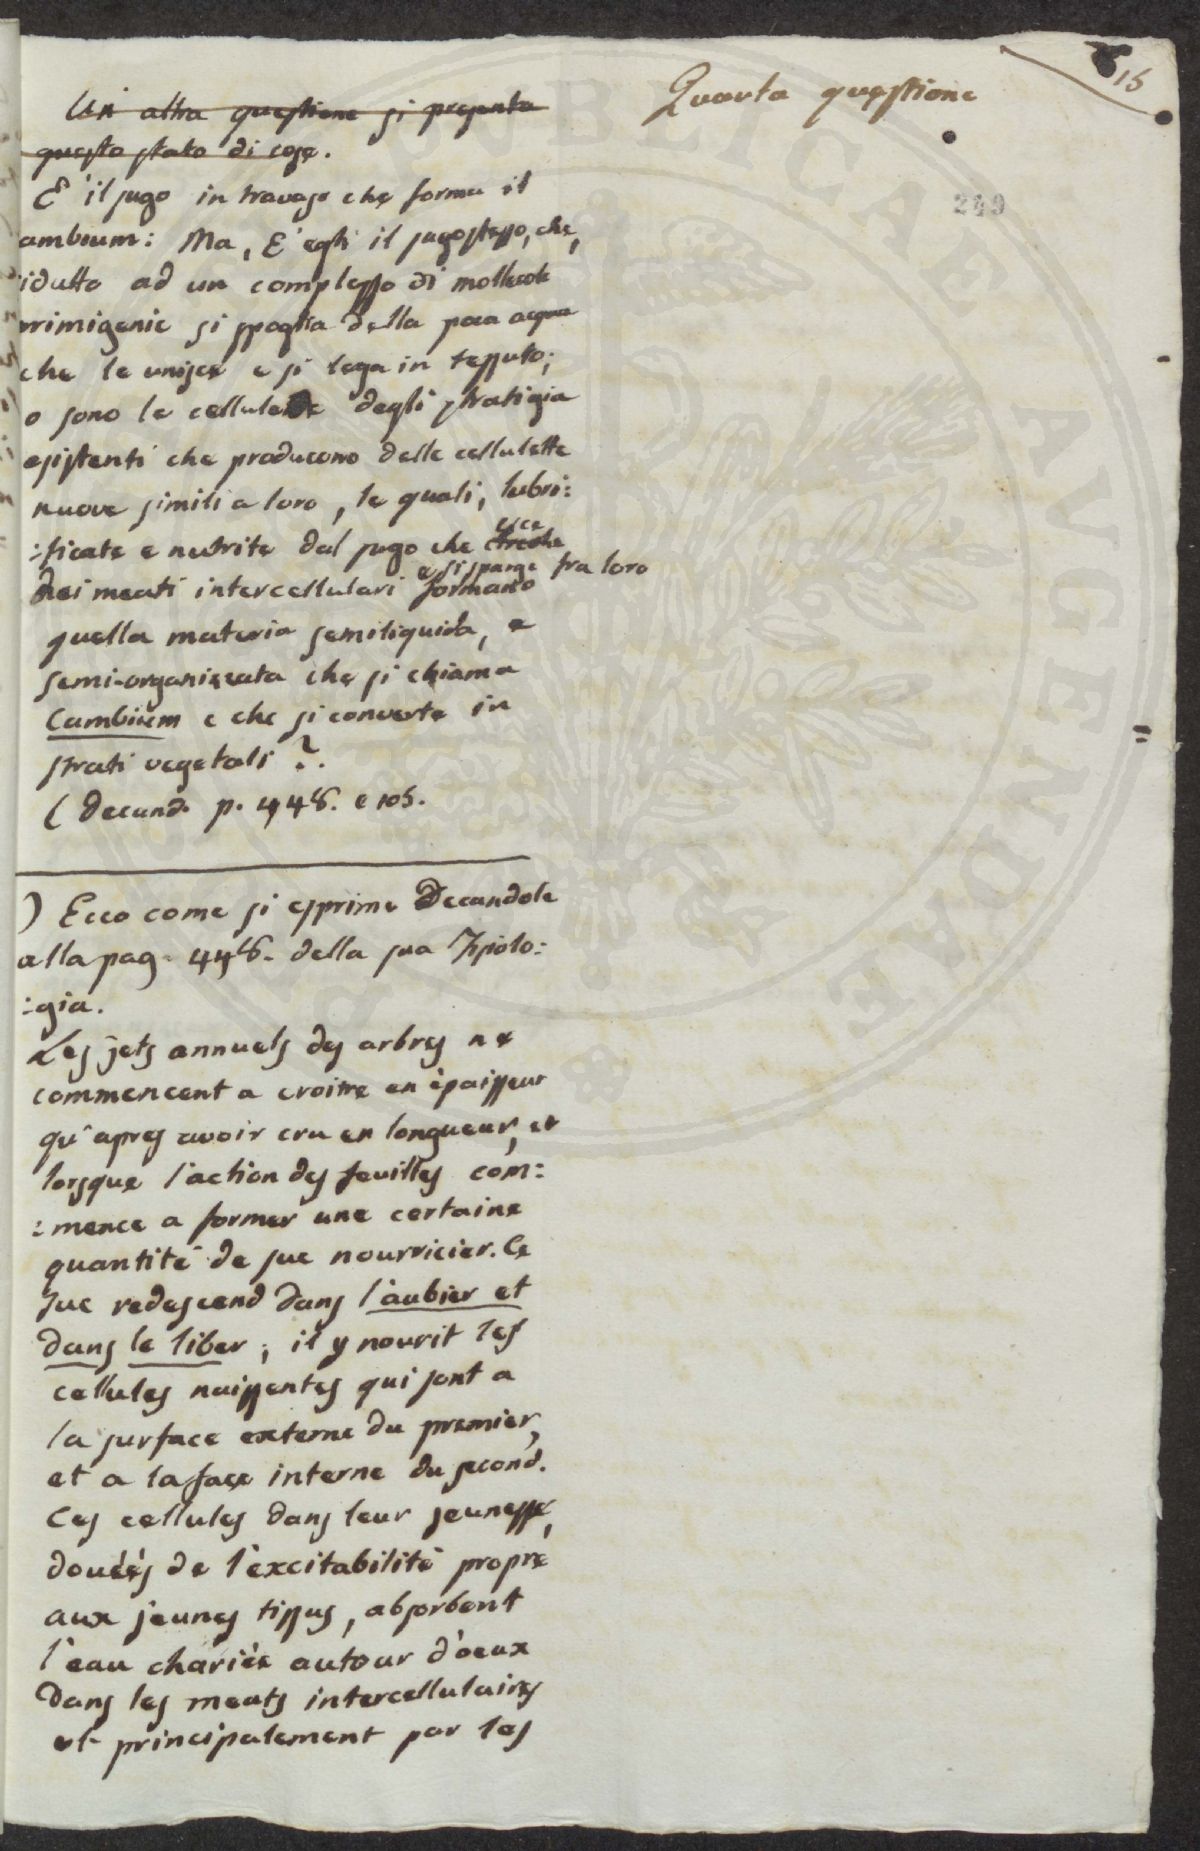 Quarta questione
15
249
Un' altra questione si presenta
questo stato di cose.
E' il sugo in travaso che forma il
ambium: Ma, E' egli il sugo stesso, che,
idutto ad un complesso di mollecole
primigenie si spoglia della poca acqua
che le unisce e si lega in tessuto;
o sono le cellule degli strati gia
esistenti che producono delle cellulette
nuove simili a loro, le quali, lubri:
:ficate e nutrite dal sugo che esce
dei meati intercellulari e si spange fra loro formano
quella materia semiliquida, e
semi-organizzata che si chiama
Cambium e che si converte in
strati vegetali?.
( Decand. p. 448. e 105.
) Ecco come si esprime Decandole
alla pag. 448. della sua Fisiolo:
:gia.
Les jets annuels des arbres ne
commencent a croitre en épaisseur
qu'apres avoir cru en longueur, et
lorsque l'action des feuilles com:
:mence a former une certaine
quantité de suc nourricier. Ce
suc redescend dans l'aubier et
dans le liber; il y nourit les
cellules naissentes qui sont a
la surface externe du premier,
et a la face interne du second.
Ces cellules dans leur jeunesse,
douéés de l'éxcitabilité propre
aux jeunes tissus, absorbent
l'eau chariée autour d'oeux
dans les meats intercellulaires
et principalement par les